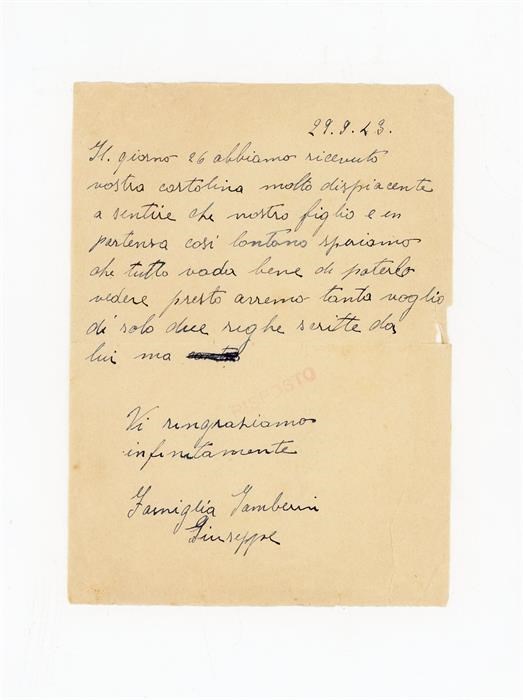 29.9.43.
Il. giorno 26 abbiamo ricevuto
vostra cartolina molto dispiacente
a sentire che nostro figlio e in
partensa così lontano speriamo
che tutto vada bene di poterlo
vedere presto arremo tanta voglio
di solo due righe scritte da
lui ma
RISPOSTO
Vi ringrasiamo
infinitamente
Famiglia Tamberi
Giuseppe